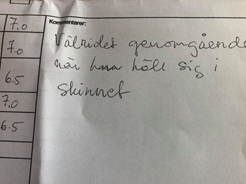 7.0
Kommentarer:
7.0
Välridet genomgående
när hon höll sig i
6.5
skinnet
7.0
6.5